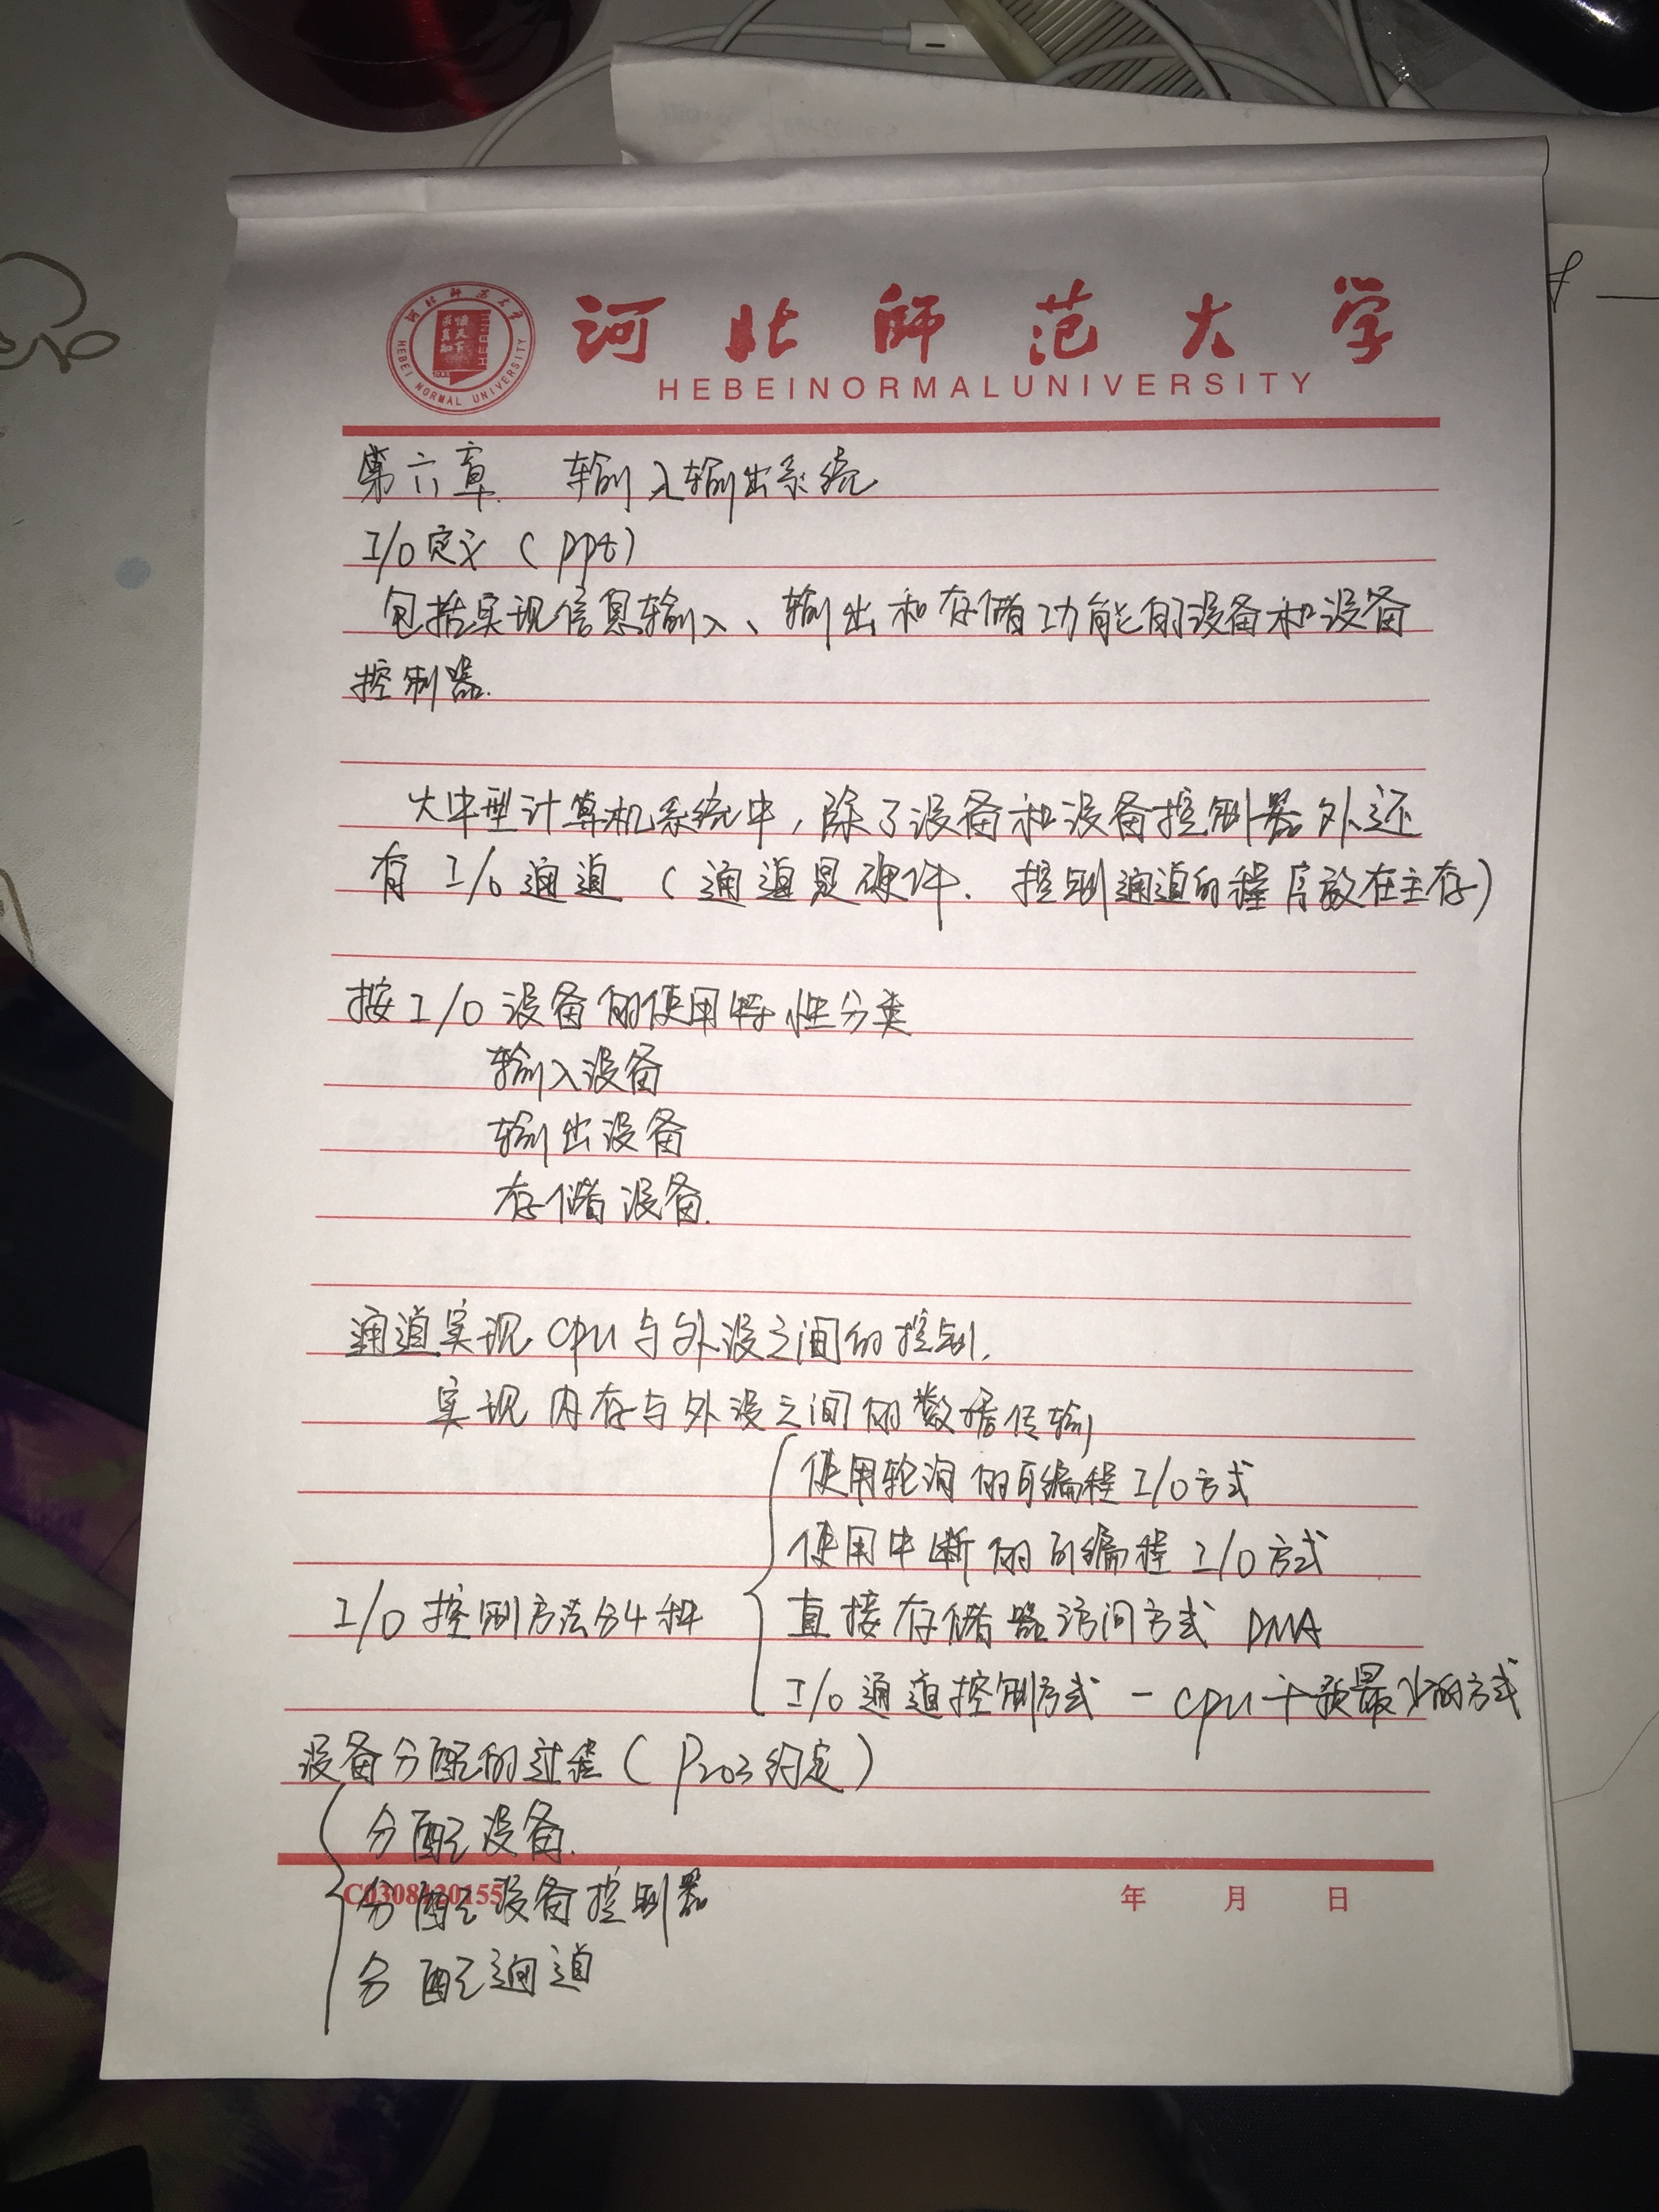 河北师范大学
HEBEINORMALUNIVERSITY
HEBEI NORMAL UNIVERSITY
第六章 输入输出系统
I/O定义(ppt)
包括实现信息输入、输出和存储功能的设备和设备
控制器.
大中型计算机系统中,除了设备和设备控制器外还
有 I/O 通道(通道是硬件. 控制通道的程序放在主存)
按I/O设备的使用特性分类
输入设备
输出设备
存储设备.
通道实现cpu与外设之间的控制.
实现内存与外设之间的数据传输
I/O 控制方法分4种
使用轮询的可编程I/O方式
使用中断的可编程I/O方式
直接存储器访问方式 DMA
I/O通道控制方式 - cpu干预最少的方式
设备分配的过程(P203约定)
分配设备.
分配设备控制器
分配通道
C0308120155
年 月 日